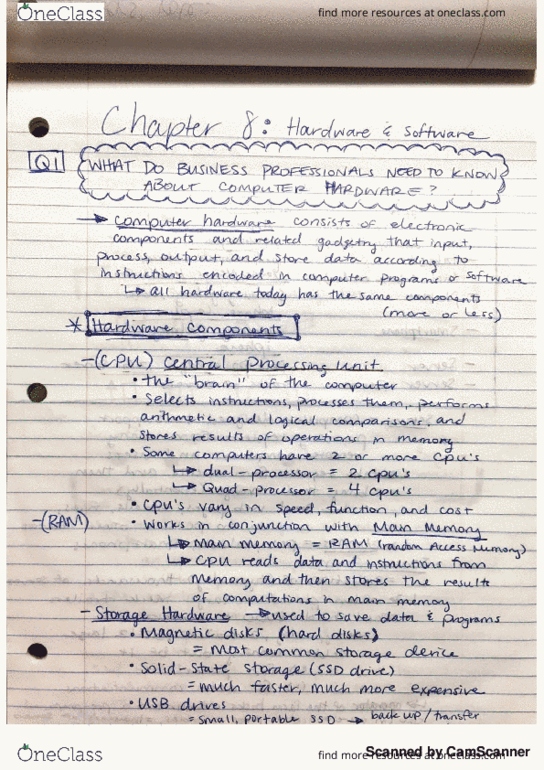 OneClass
find more resources at oneclass.com
Chapter 8: Hardware & Software
Q1 WHAT DO BUSINESS PROFESSIONALS NEED TO KNOW
ABOUT COMPUTER HARDWARE?
→ computer hardware consists of electronic
components and related gadgetry that input,
process, output, and store data according to
instructions encoded in computer programs or software
↳ all hardware today has the same components
(more or less)
* Hardware Components
-(CPU) Central Processing Unit
• the "brain" of the computer
• Selects instructions, processes them, performs
arithmetic and logical comparisons, and
stores results of operations in memory
• Some computers have 2 or more CPU's
↳ dual-processor = 2 cpu's
↳ Quad-processor = 4 cpu's
• CPU's vary in speed, function, and cost
-(RAM) • Works in conjunction with Main Memory
↳ main memory = RAM (random Access Memory)
↳ CPU reads data and instructions from
memory and then stores the results
of computations in main memory
- Storage Hardware → used to save data & programs
• Magnetic disks (hard disks)
= most common storage device
• Solid-State storage (SSD drive)
= much faster, much more expensive
• USB drives
= small, portable SSD → back up / transfer
OneClass
find more resources at oneclass.com
Scanned by CamScanner